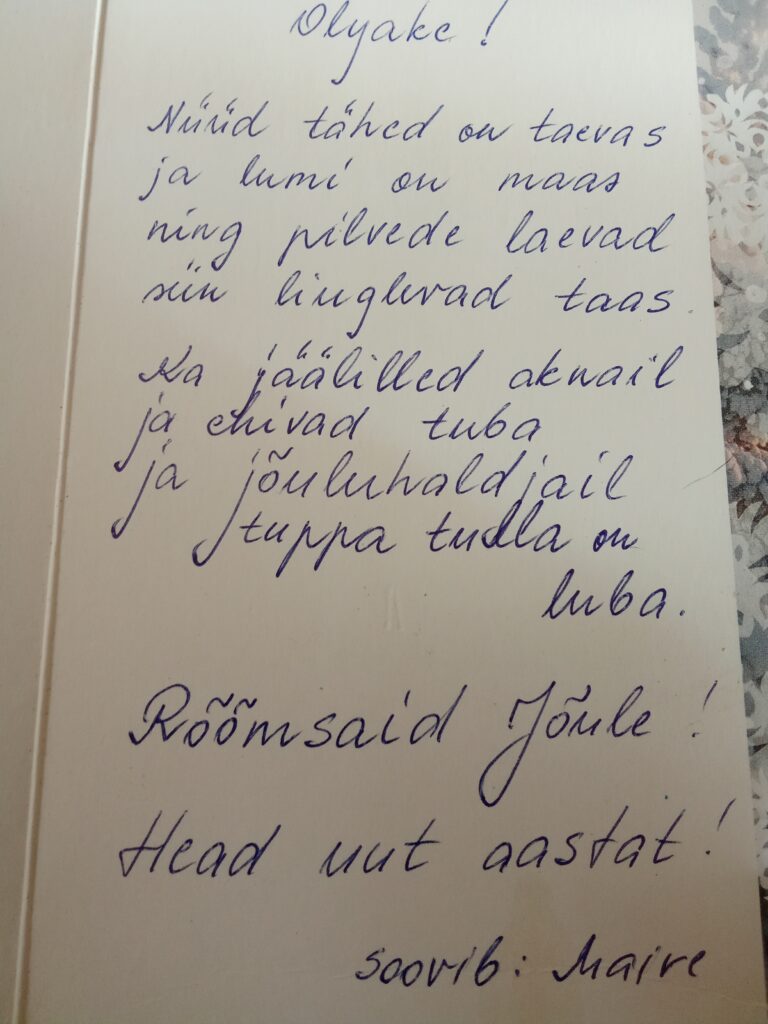 Olyake!
Nüüd tähed on taevas
ja lumi on maas
ning pilvede laevad
siin linglevad taas.
Ka jäälilled aknail
ja ehivad tuba
ja jõuluhaldjail
tuppa tulla on
luba.
Rõõmsaid Jõule!
Head uut aastat!
soovib: Maire